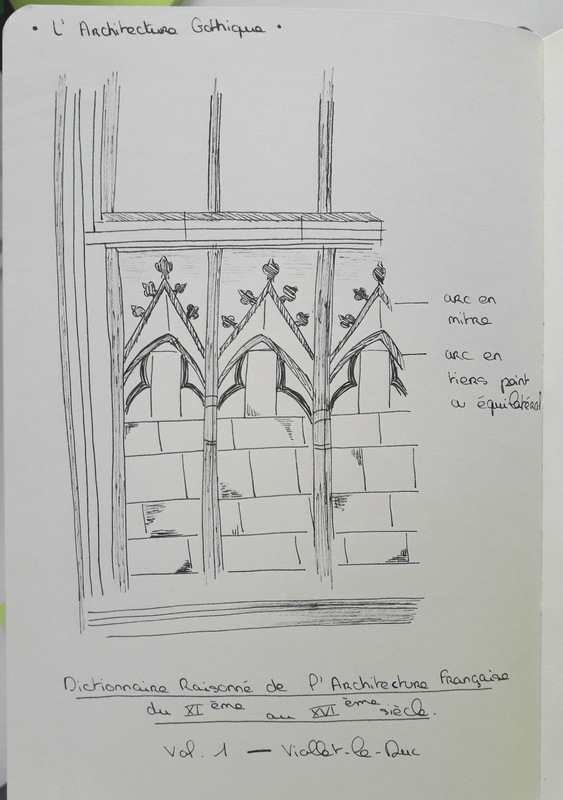 • L' Architecture Gothique •
arc en
mitre
arc en
tiers point
ou équilatéral
Dictionnaire Raisonné de l'Architecture Française
du XI ème au XVI ème siècle.
Vol. 1 — Viollet-le-Duc